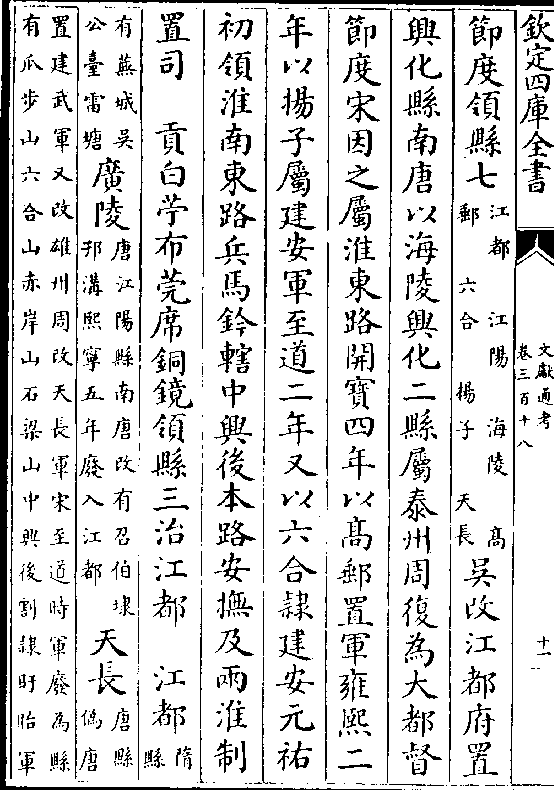 欽定四庫全書
文獻通考
卷三百十八
十一
節度領縣七江都 江陽 海陵 高
郵 六合 揚子 天長吳改江都府置
興化縣南唐以海陵興化二縣屬泰州周復為大都督
節度宋因之屬淮東路開寶四年以高郵置軍雍熙二
年以揚子屬建安軍至道二年又以六合隸建安元祐
初領淮南東路兵馬鈐轄中興後本路安撫及兩淮制
置司 貢白苧布莞席銅鏡領縣三治江都 江都隋
縣
有蕪城吳
公臺雷塘廣陵唐江陽縣南唐改有召伯埭
邗溝熙寧五年廢入江都天長唐縣
偽唐
置建武軍又改雄州周改天長軍宋至道時軍廢為縣
有瓜步山六合山赤岸山石梁山中興後割隸盱眙軍